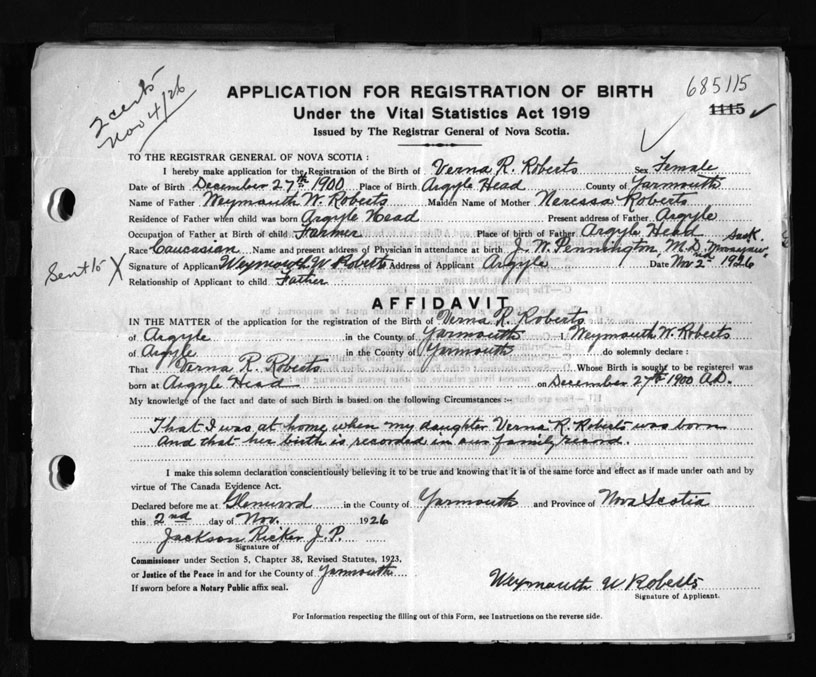 2 cents
Nov 4/26
685115
1115
APPLICATION FOR REGISTRATION OF BIRTH
Under the Vital Statistics Act 1919
Issued by The Registrar General of Nova Scotia.
TO THE REGISTRAR GENERAL OF NOVA SCOTIA :
I hereby make application for the Registration of the Birth of Verna R. Roberts Sex Female
Date of Birth December 27th 1900 Place of Birth Argyle Head County of Yarmouth
Name of Father Weymouth W. Roberts Maiden Name of Mother Neressa Roberts
Residence of Father when child was born Argyle Head Present address of Father Argyle
Occupation of Father at Birth of child Farmer Place of birth of Father Argyle Head
Race Caucasian Name and present address of Physician in attendance at birth J. W. Pennington, M.D.
Sent 15 X Signature of Applicant Weymouth W Roberts Address of Applicant Argyle Date Nov 2nd 1926
Relationship of Applicant to child Father
AFFIDAVIT
IN THE MATTER of the application for the registration of the Birth of Verna R. Roberts
of Argyle in the County of Yarmouth I Weymouth W. Roberts
of Argyle in the County of Yarmouth do solemnly declare :
That Verna R. Roberts Whose Birth is sought to be registered was
born at Argyle Head on December 27th 1900 A.D.
My knowledge of the fact and date of such Birth is based on the following Circumstances :-
That I was at home when my daughter Verna R. Roberts was born
And that her birth is recorded in our family record.
I make this solemn declaration conscientiously believing it to be true and knowing that it is of the same force and effect as if made under oath and by
virtue of The Canada Evidence Act.
Declared before me at Glenwood in the County of Yarmouth and Province of Nova Scotia
this 2nd day of Nov. 1926
Jackson Ricker J.P.
Signature of
Commissioner under Section 5, Chapter 38, Revised Statutes, 1923,
or Justice of the Peace in and for the County of Yarmouth
If sworn before a Notary Public affix seal.
Weymouth W Roberts
Signature of Applicant.
For Information respecting the filling out of this Form, see Instructions on the reverse side.